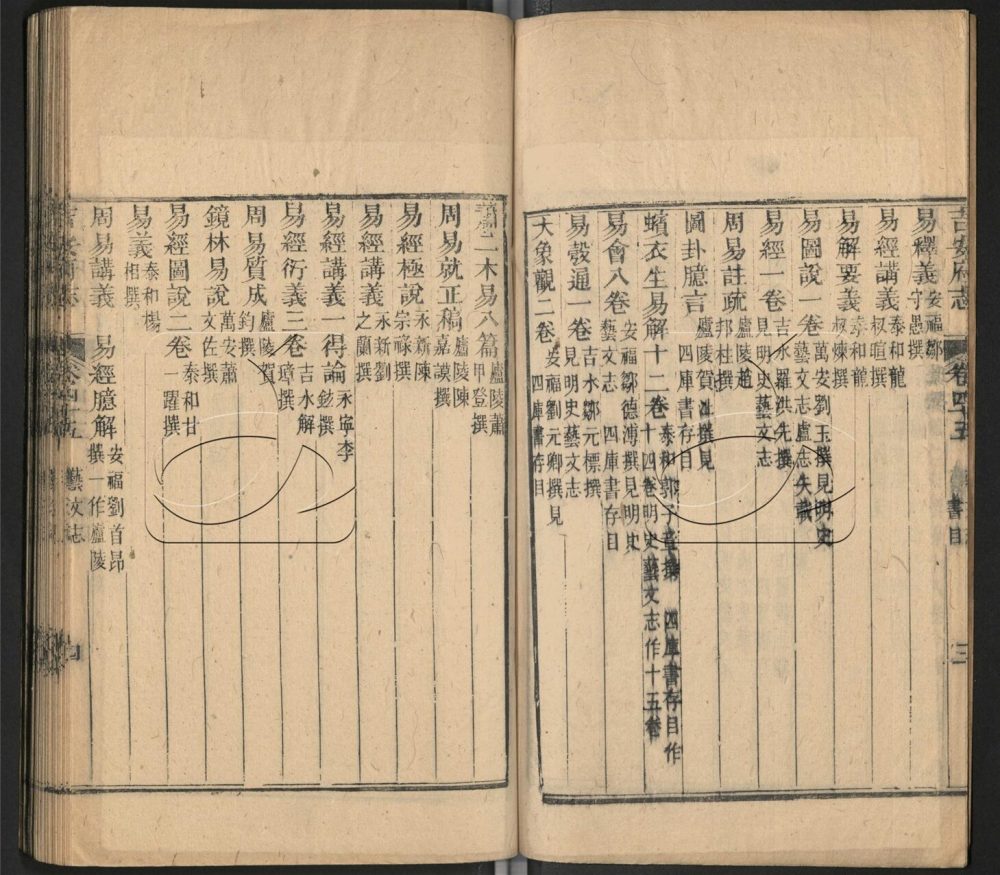 吉安府志 卷四十五 書目 三
易釋義 安福鄒守愚撰
易經講義 泰和龍叔暄撰
易解要義 泰和龍叔煉撰
易圖說一卷 萬安劉玉撰見明史藝文志盧志失載
易經一卷 吉水羅洪先撰見明史藝文志
周易註疏 廬陵趙邦桂撰
圖卦臆言 廬陵賀沚撰見四庫書存目
蠙衣生易解十二卷 泰和郭子章撰 四庫書存目作十四卷明史藝文志作十五卷
易會八卷 安福鄒德溥撰見明史藝文志 四庫書存目
易彀通一卷 吉水鄒元標撰見明史藝文志
大象觀二卷 安福劉元卿撰見四庫書存目
二木易八篇 廬陵蕭甲登撰
周易就正稿 廬陵陳嘉謨撰
易經極說 永新陳宗祿撰
易經講義 永新劉之蘭撰
易經講義一得論 永寧李鉉撰
易經衍義三卷 吉水解璋撰
周易質成 廬陵賀鈞撰
鏡林易說 萬安蕭文佐撰
易經圖說二卷 泰和甘一躍撰
易義 泰和楊相撰
周易講義 易經臆解 安福劉首昂撰一作廬陵
吉安府志 卷四十五 藝文志 四